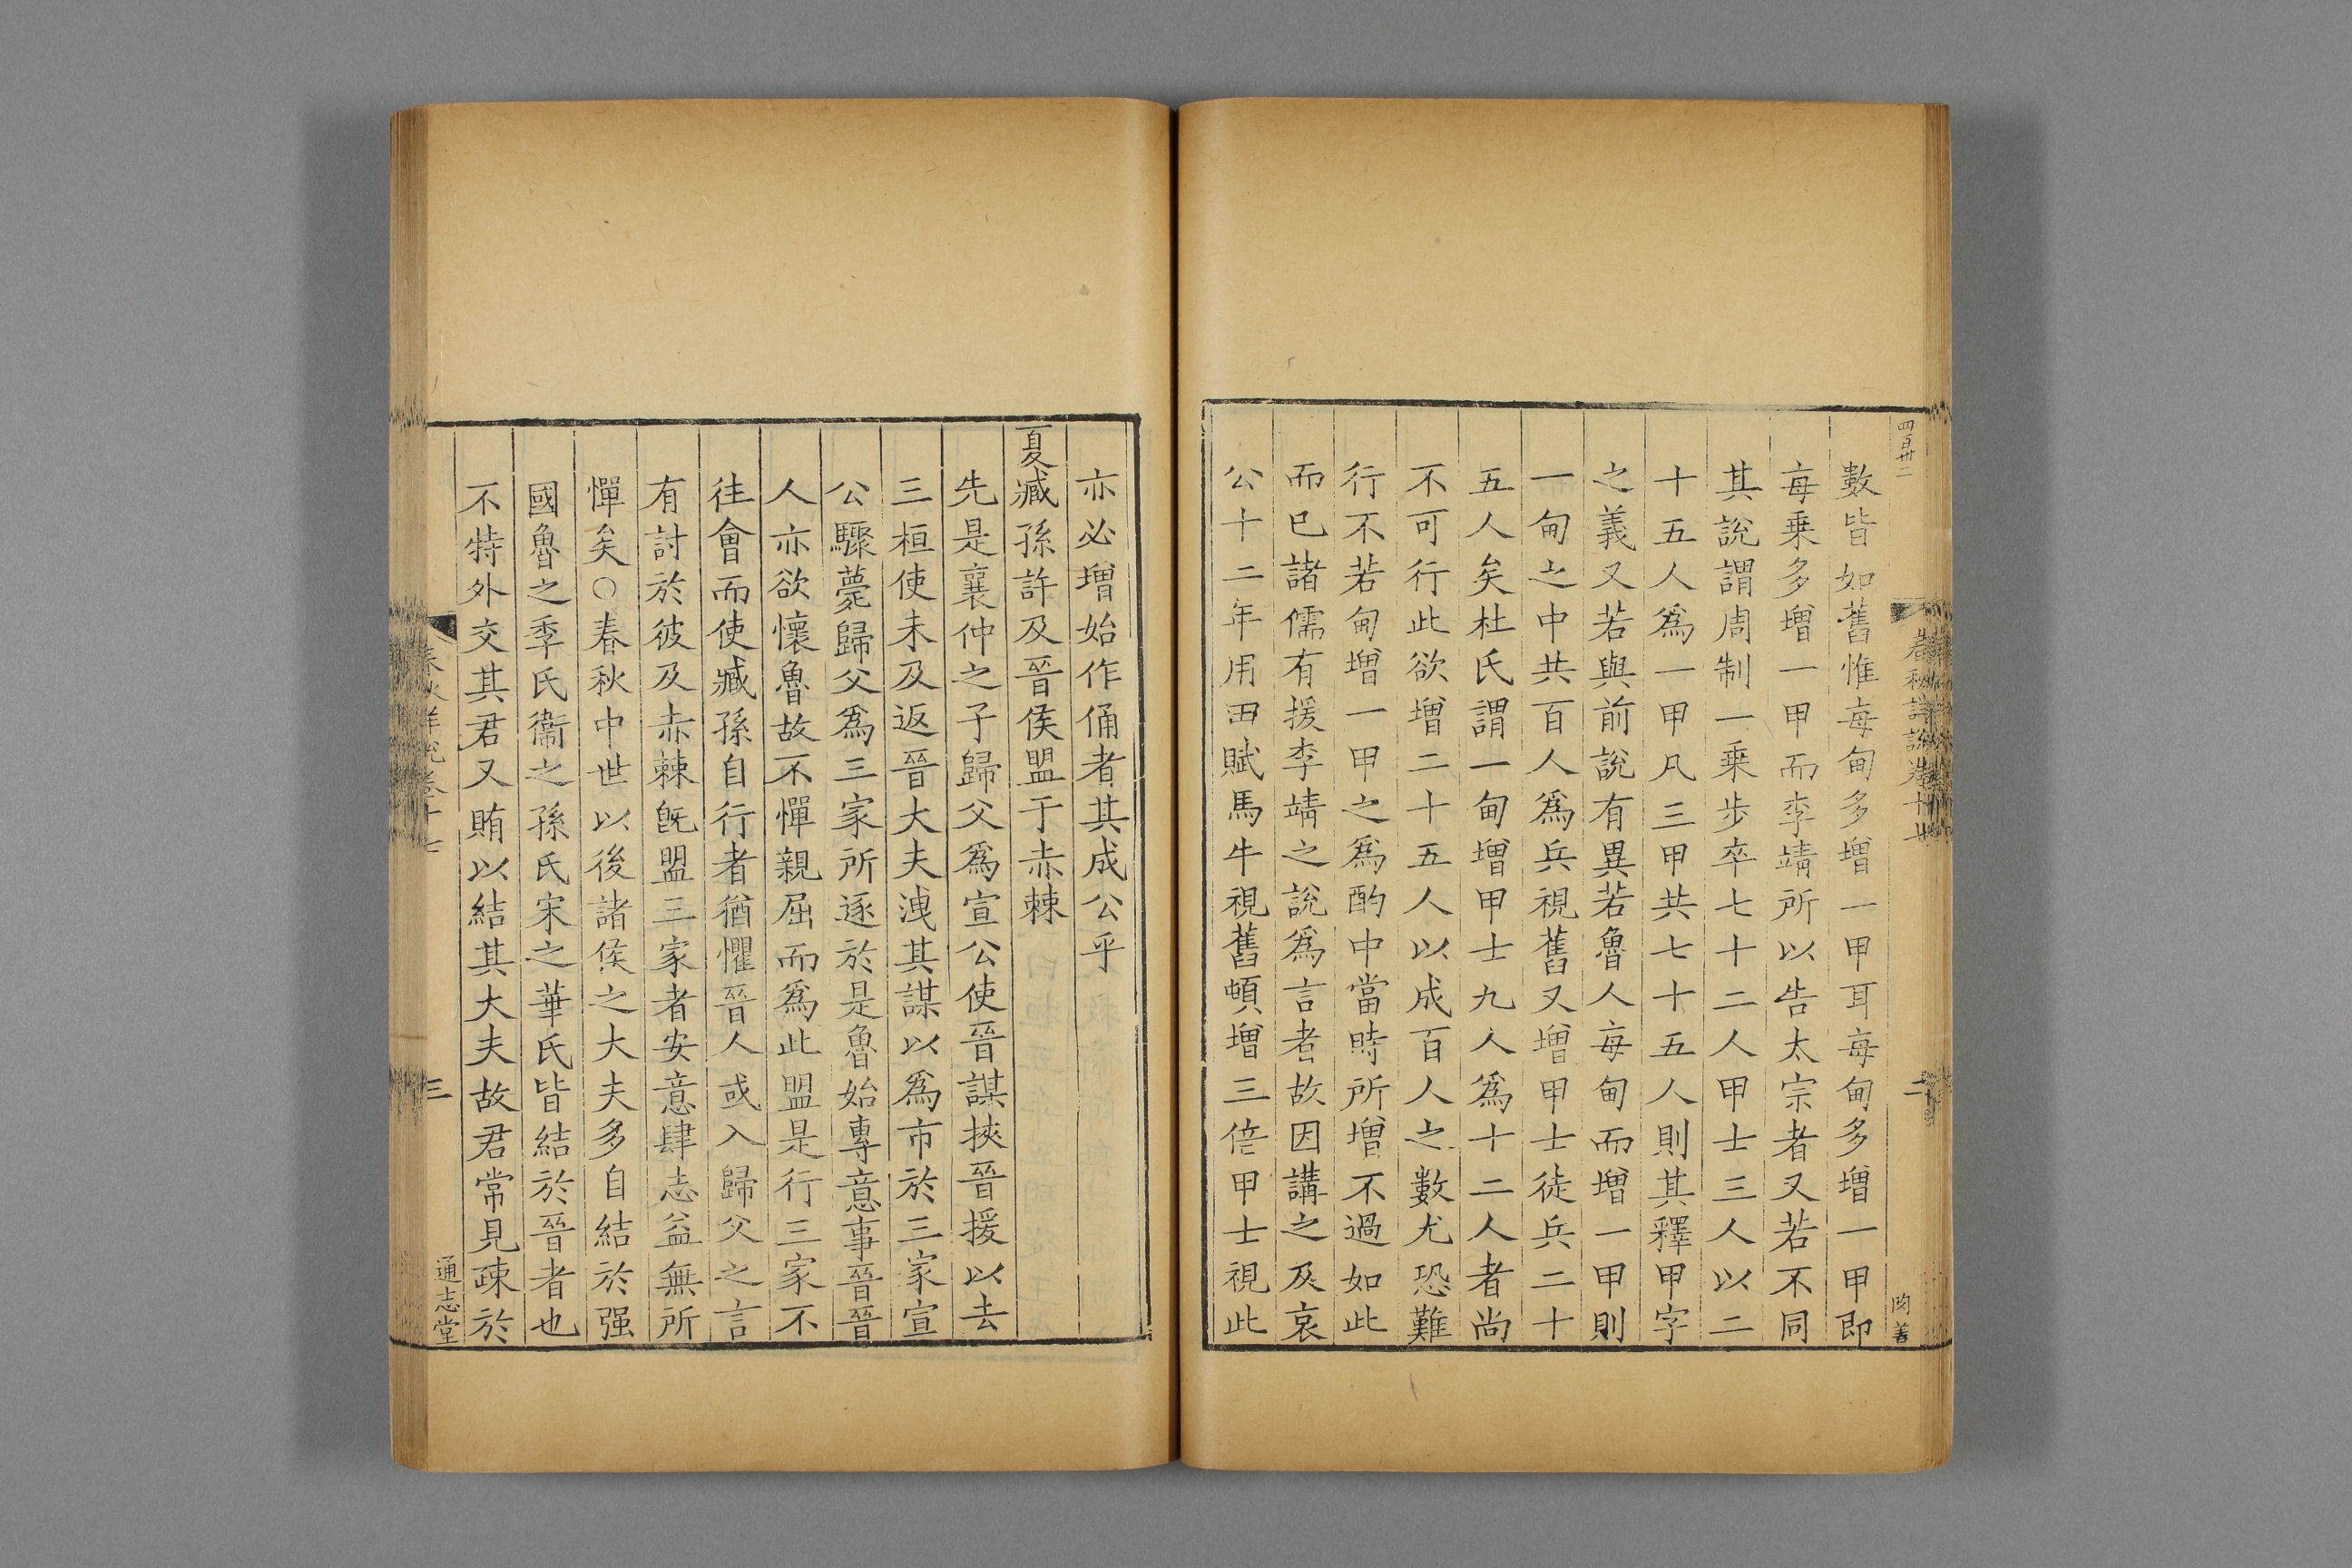 四百卅二
春秋詳說卷十七
二
數皆如舊惟每甸多增一甲耳每甸多增一甲即
每乗多增一甲而李靖所以告太宗者又若不同
其說謂周制一乗步卒七十二人甲士三人以二
十五人爲一甲凡三甲共七十五人則其釋甲字
之義又若與前說有異若魯人每甸而增一甲則
一甸之中共百人爲兵視舊又增甲士徒兵二十
五人矣杜氏謂一甸增甲士九人爲十二人者尚
不可行此欲增二十五人以成百人之數尤恐難
行不若甸增一甲之爲酌中當時所增不過如此
而已諸儒有援李靖之說爲言者故因講之及哀
公十二年用田賦馬牛視舊頓增三倍甲士視此
亦必增始作俑者其成公乎
夏臧孫許及晉侯盟于赤棘
先是襄仲之子歸父爲宣公使晉謀挾晉援以去
三桓使未及返晉大夫洩其謀以爲市於三家宣
公驟薨歸父爲三家所逐於是魯始專意事晉晉
人亦欲懷魯故不憚親屈而爲此盟是行三家不
徃會而使臧孫自行者猶懼晉人或入歸父之言
有討於彼及赤棘旣盟三家者安意肆志益無所
憚矣○春秋中世以後諸侯之大夫多自結於强
國魯之季氏衞之孫氏宋之華氏皆結於晉者也
不特外交其君又賄以結其大夫故君常見疎於
春秋詳說卷十七
三
通志堂